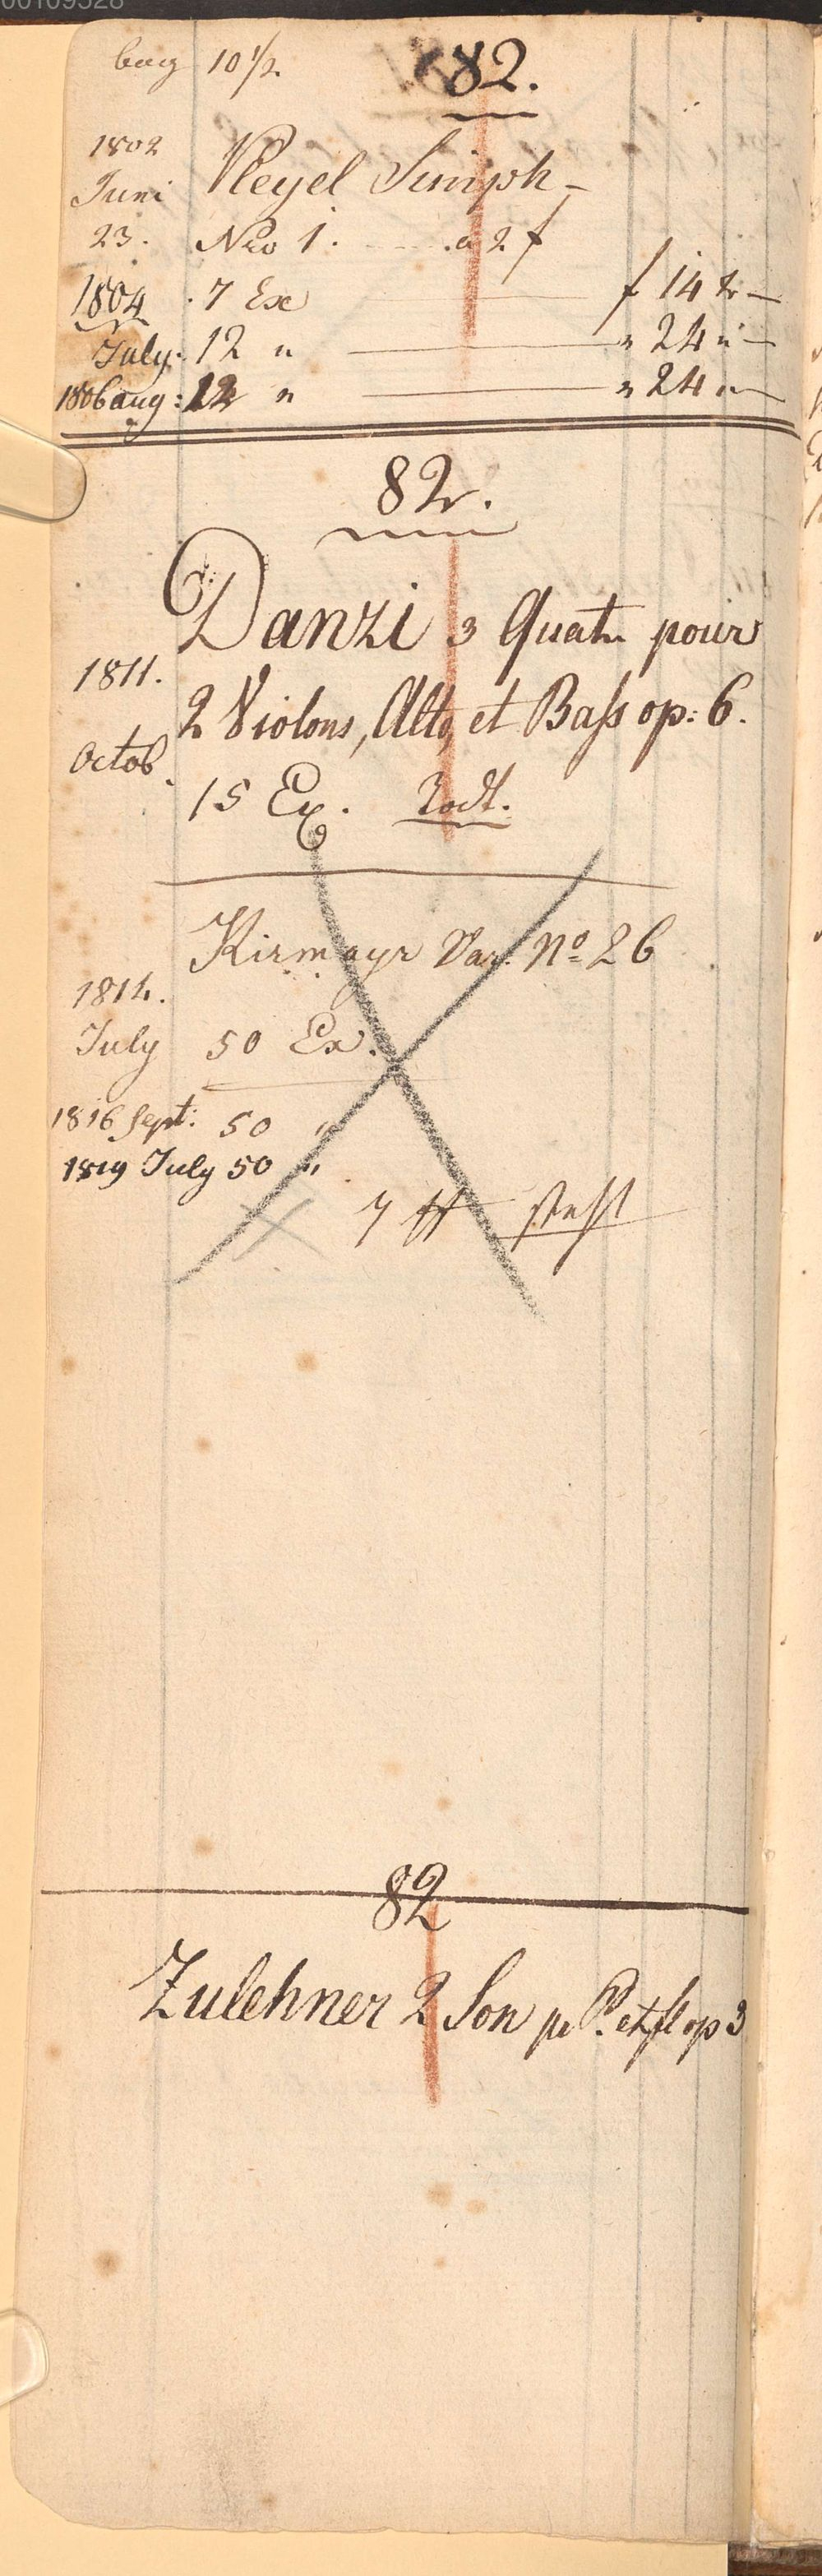 bog 10 1/2. 82.
1802
Juni Pleyel Simph-
23. Nro 1. ...a 2 f
1804 7 Ex f 14 xr —
July. 12 " " 24 " —
1806 aug: 12 " " 24 " —
82.
Danzi 3 Quatu pour
1811. 2 Violons, Alto, et Bass op: 6.
Octob. 15 Ex. Todt.
Kirmayr Var. No 26
1814.
July 50 Ex.
1816 Sept: 50 "
1819 July 50 "
82
Zulehner 2 Son pr P. et fl op 3